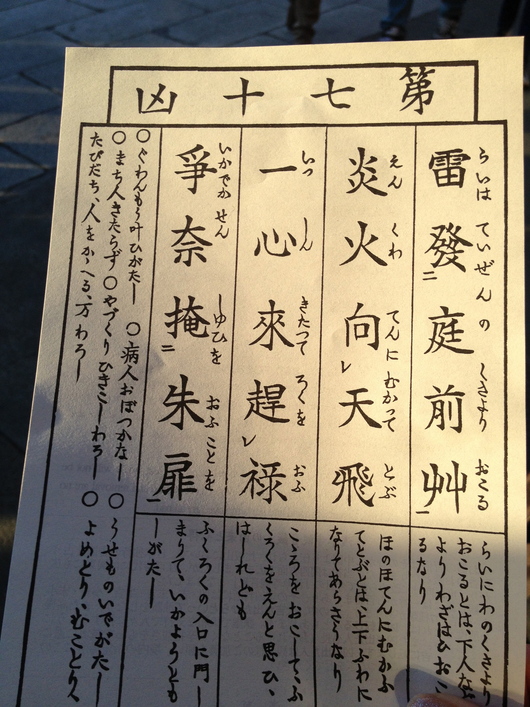 第七十凶
雷發二庭前艸一
らいは ていぜんの くさより おこる
らいにわのくさより
おこるとは、下人など
よりわざはひおこ
るなり
炎火向レ天飛
えん くわ てんに むかつて とぶ
ほのほてんにむかふ
てとぶとは、上下ふわに
なりてあらさうなり
一心來趕レ禄
いつ しん きたつて ろくを おふ
こゝろをおこして、ふ
くろくをえんと思ひ、
はしれども
爭奈掩二朱扉一
いかでか せん しゆひを おふことを
ふくろくの入口に門し
まりて、いかようとも
しがたし
○ぐわんもう叶ひがたし ○病人おぼつかなし ○うせものいでがたし
○まち人きたらず○やづくりひきこしわろし ○よめとり、むことり
たびだち、人をかゝへる、万わろし